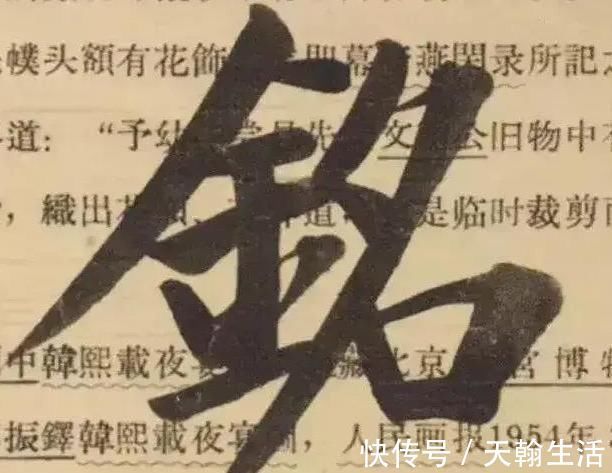 銘
幞头額有花飾 幕 燕閑录所記
道：“予幼 先 文 公旧物中
，織出花 道 是临时裁剪
中韓熙載夜宴 藏北京 宮博物
振鐸韓熙載夜宴 ，人民画报1954年
快传号 / 天翰生活